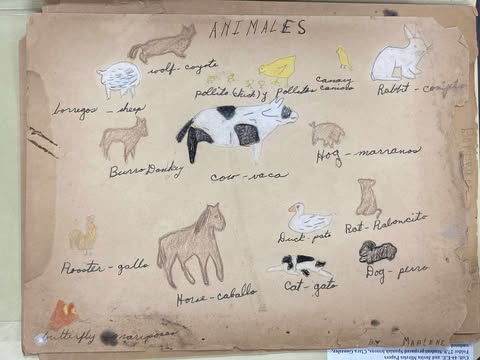 ANIMALES
wolf - coyote
canary
canario
Pollito (chick) y Pollitos
Rabbit - conejo
borregos - sheep
Burro Donkey
Hog - marranos
cow - vaca
Duck - pato
Rat - Raloncito
Rooster - gallo
Horse - caballo
Cat - gato
Dog - perro
butterfly mariposa
BY MARLENE